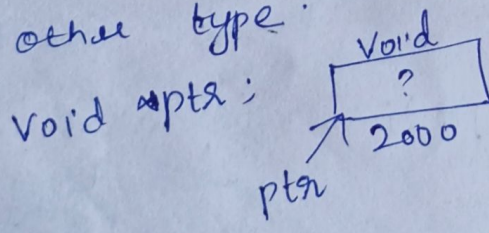 other type.
void *ptr;
void
?
2000
ptr